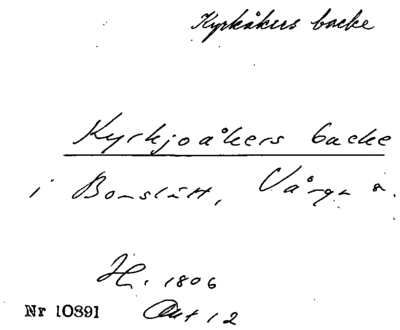 Kyrkåkers backe
Kyrkjoåkers backe
i Bonslätt, Vånga s.
H. 1806
Nr 10891 Akt 12